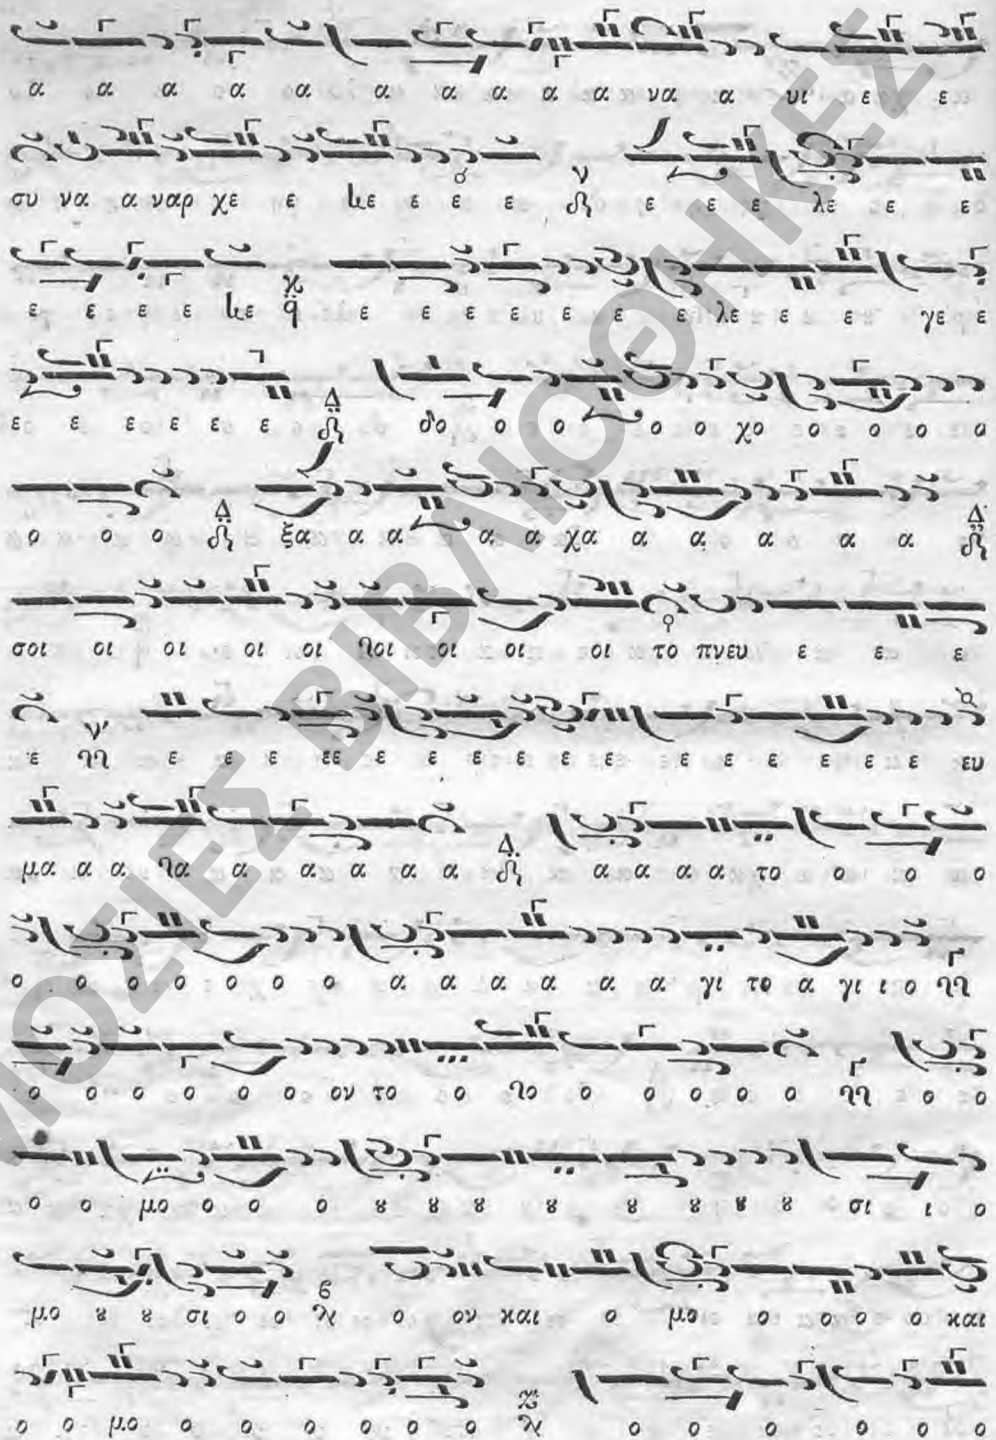 α α α α α α α α α α να α υι ε ε
συ να α ναρ χε ε κε ε ε ε ν ε ε ε λε ε ε
ε ε ε ε κε χ ε ε ε ε ε ε ε λε ε ε γε ε
ε ε ε ε ε ε Δ δο ο ο ο ο ο χο ο ο ο ο
ο ο ο Δ ξα α α α α χα α α α α α Δ
σοι οι οι οι οι οι οι οι το πνευ ε ε ε
ε ν ε ε ε εε ε ε ε ε ε ε ε ε ε ε ε ε ευ
μα α α α α α α α Δ α α α α το ο ο ο
ο ο ο ο ο ο ο α α α α α α γι το α γι ι ο
ο ο ο ο ο ο ον το ο ο ο ο ο ο ο ο
ο ο μο ο ο ο ȣ ȣ ȣ ȣ ȣ ȣ ȣ ȣ σι ι ο
μο ȣ ȣ σι ο ο ο ον και ο μο ο ο ο ο και
ο ο μο ο ο ο ο ο ο ο ο ο ο ο
ΒΙΒΛΙΟΘΗΚΕΣ